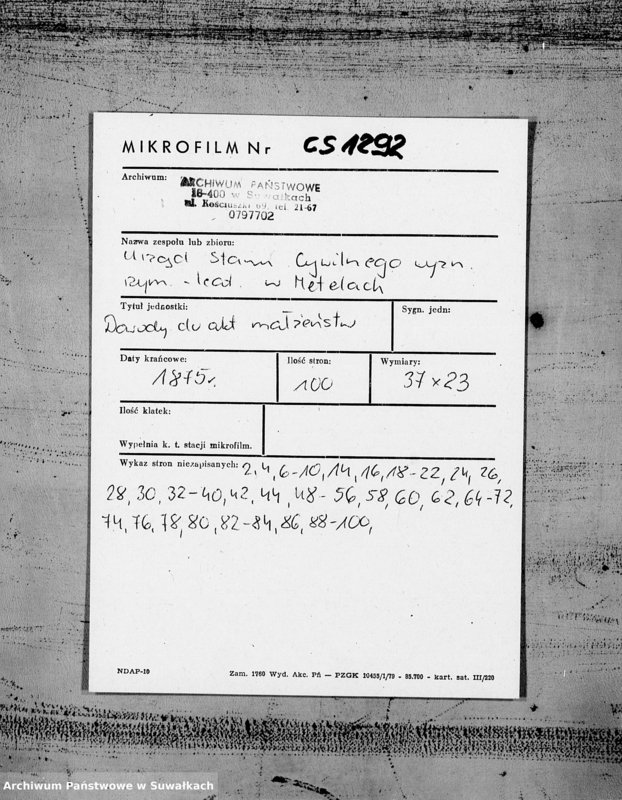 MIKROFILM Nr CS 1292
Archiwum:
ARCHIWUM PAŃSTWOWE
16-400 w Suwałkach
ul. Kościuszki 69, tel. 21-67
0797702
Nazwa zespołu lub zbioru:
Urząd Stanu Cywilnego wyzn.
rzym. - kat. w Metelach
Tytuł jednostki:
Dowody do akt małżeństw
Sygn. jedn:
Daty krańcowe:
1875r.
Ilość stron:
100
Wymiary:
37 x 23
Ilość klatek:
Wypełnia k. t. stacji mikrofilm.
Wykaz stron niezapisanych: 2, 4, 6-10, 14, 16, 18-22, 24, 26,
28, 30, 32-40, 42, 44, 48-56, 58, 60, 62, 64-72,
74, 76, 78, 80, 82-84, 86, 88-100,
NDAP-10
Zam. 1760 Wyd. Akc. Pń — PZGK 10455/I/79 - 85.700 - kart. sat. III/220
Archiwum Państwowe w Suwałkach